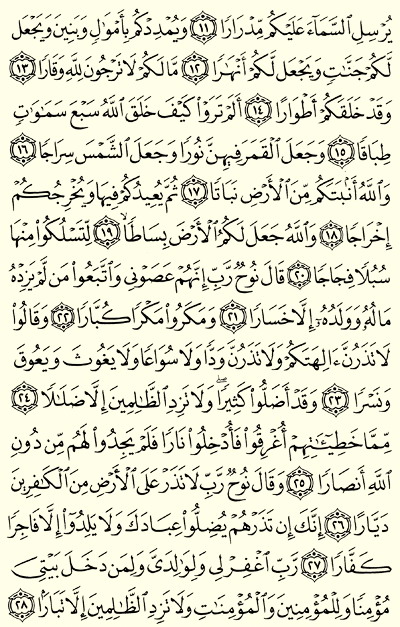 يُرۡسِلِ ٱلسَّمَآءَ عَلَيۡكُم مِّدۡرَارٗا ١١ وَيُمۡدِدۡكُم بِأَمۡوَٰلٖ وَبَنِينَ وَيَجۡعَل
لَّكُمۡ جَنَّـٰتٖ وَيَجۡعَل لَّكُمۡ أَنۡهَٰرٗا ١٢ مَّا لَكُمۡ لَا تَرۡجُونَ لِلَّهِ وَقَارٗا ١٣
وَقَدۡ خَلَقَكُمۡ أَطۡوَارًا ١٤ أَلَمۡ تَرَوۡاْ كَيۡفَ خَلَقَ ٱللَّهُ سَبۡعَ سَمَٰوَٰتٖ
طِبَاقٗا ١٥ وَجَعَلَ ٱلۡقَمَرَ فِيهِنَّ نُورٗا وَجَعَلَ ٱلشَّمۡسَ سِرَاجٗا ١٦
وَٱللَّهُ أَنۢبَتَكُم مِّنَ ٱلۡأَرۡضِ نَبَاتٗا ١٧ ثُمَّ يُعِيدُكُمۡ فِيهَا وَيُخۡرِجُكُمۡ
إِخۡرَاجٗا ١٨ وَٱللَّهُ جَعَلَ لَكُمُ ٱلۡأَرۡضَ بِسَاطٗا ١٩ لِّتَسۡلُكُواْ مِنۡهَا
سُبُلٗا فِجَاجٗا ٢٠ قَالَ نُوحٞ رَّبِّ إِنَّهُمۡ عَصَوۡنِي وَٱتَّبَعُواْ مَن لَّمۡ يَزِدۡهُ
مَالُهُۥ وَوَلَدُهُۥٓ إِلَّا خَسَارٗا ٢١ وَمَكَرُواْ مَكۡرٗا كُبَّارٗا ٢٢ وَقَالُواْ
لَا تَذَرُنَّ ءَالِهَتَكُمۡ وَلَا تَذَرُنَّ وَدّٗا وَلَا سُوَاعٗا وَلَا يَغُوثَ وَيَعُوقَ
وَنَسۡرٗا ٢٣ وَقَدۡ أَضَلُّواْ كَثِيرٗاۖ وَلَا تَزِدِ ٱلظَّـٰلِمِينَ إِلَّا ضَلَٰلٗا ٢٤
مِّمَّا خَطِيٓـَٰٔتِهِمۡ أُغۡرِقُواْ فَأُدۡخِلُواْ نَارٗا فَلَمۡ يَجِدُواْ لَهُم مِّن دُونِ
ٱللَّهِ أَنصَارٗا ٢٥ وَقَالَ نُوحٞ رَّبِّ لَا تَذَرۡ عَلَى ٱلۡأَرۡضِ مِنَ ٱلۡكَٰفِرِينَ
دَيَّارًا ٢٦ إِنَّكَ إِن تَذَرۡهُمۡ يُضِلُّواْ عِبَادَكَ وَلَا يَلِدُوٓاْ إِلَّا فَاجِرٗا
كَفَّارٗا ٢٧ رَّبِّ ٱغۡفِرۡ لِي وَلِوَٰلِدَيَّ وَلِمَن دَخَلَ بَيۡتِيَ
مُؤۡمِنٗا وَلِلۡمُؤۡمِنِينَ وَٱلۡمُؤۡمِنَٰتِ وَلَا تَزِدِ ٱلظَّـٰلِمِينَ إِلَّا تَبَارَۢا ٢٨